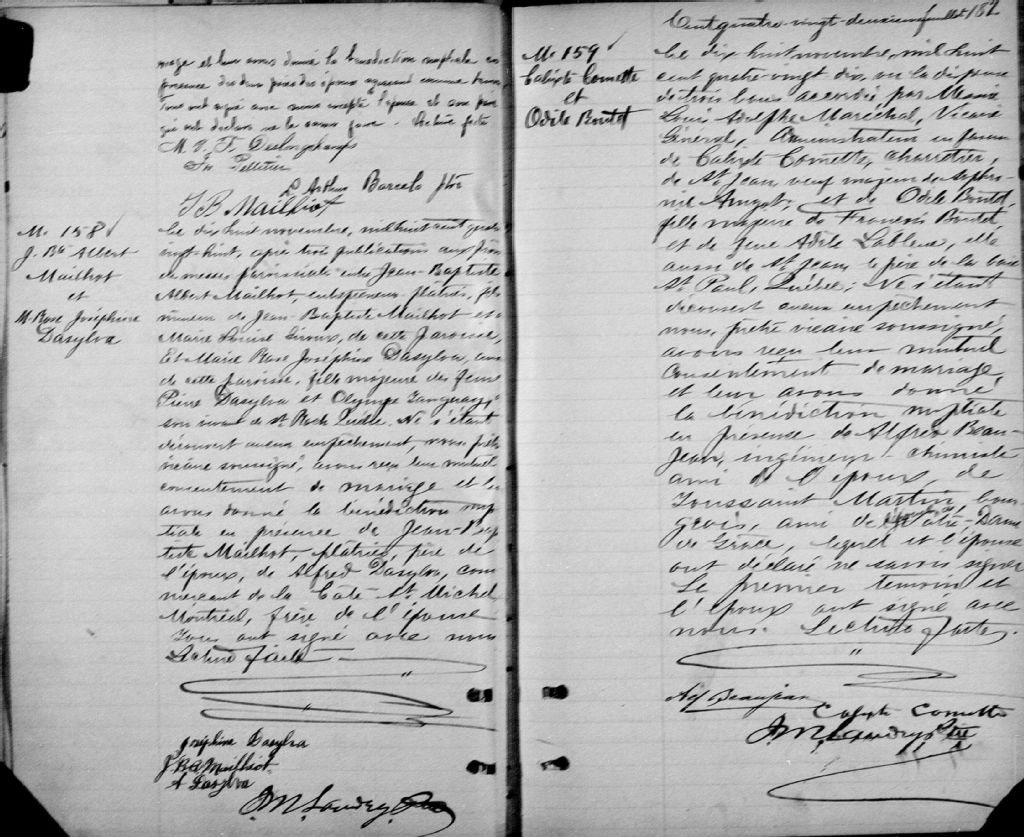 riage et leur avons donné la bénédiction nuptiale en
présence des deux pères des époux agissant comme témoins
Tous ont signé avec nous excepté l'épouse et son père
qui ont déclaré ne le savoir faire. Lecture faite
M. V. F. Deslongchamps
Jn. Pelletier
L. Arthur Barcelo ptre
J B Mailhiot
M. 158
J. Bte Albert
Mailhot
et
M. Rose Joséphine
Dasylva
Le dix huit novembre, mil huit cent quatre
vingt huit, après trois publications aux prônes
de messes paroissiales entre Jean-Baptiste
Albert Mailhot, entrepreneur plâtrier, fils
mineur de Jean-Baptiste Mailhot et de
Marie Louise Giroux, de cette paroisse,
Et Marie Rose Joséphine Dasylva, aussi
de cette paroisse, fille majeure des feus
Pierre Dasylva et Olympe Tanguay,
son vivant de St Roch Québec. Ne s'étant
découvert aucun empêchement, nous, prêtre
vicaire soussigné, avons reçu leur mutuel
consentement de mariage et leur
avons donné la bénédiction nup
tiale en présence de Jean-Bap
tiste Mailhot, plâtrier, père de
l'époux, de Alfred Dasylva, com
merçant de la Côte St. Michel
Montréal, frère de l'épouse
Tous ont signé avec nous
Lecture faite
Joséphine Dasylva
J. B. A Mailhiot
A Dasylva
J. M. Landry Ptre
Cent quatre-vingt-deuxième feuillet 182
M. 159
Calixte Comette
et
Odile Boutet
Le dix huit novembre, mil huit
cent quatre-vingt dix, vu la dispense
de trois bans accordée par Messire
Louis Adolphe Maréchal, Vicaire
Général, Administrateur en faveur
de Calixte Comette, charretier,
de St Jean, veuf majeur de Sophro
nie Amyot; et de Odile Boutet,
fille majeure de François Boutet
et de feue Adèle Lableue, elle
aussi de St Jean, le père de la baie
St. Paul, Québec; Ne s'étant
découvert aucun empêchement
nous, prêtre vicaire soussigné,
avons reçu leur mutuel
consentement de mariage
et leur avons donné
la bénédiction nuptiale
en présence de Alfred Beau-
Jean, ingénieur-chimiste
ami de l'époux, de
Toussaint Martin, bour
geois, ami de l'époux, de Notre-Dame
de Grâce, lequel et l'épouse
ont déclaré ne savoir signer
Le premier témoin et
l'époux ont signé avec
nous. Lecture faite.
Alf Beaujean
Calixte Comette
J. M. Landry Ptre